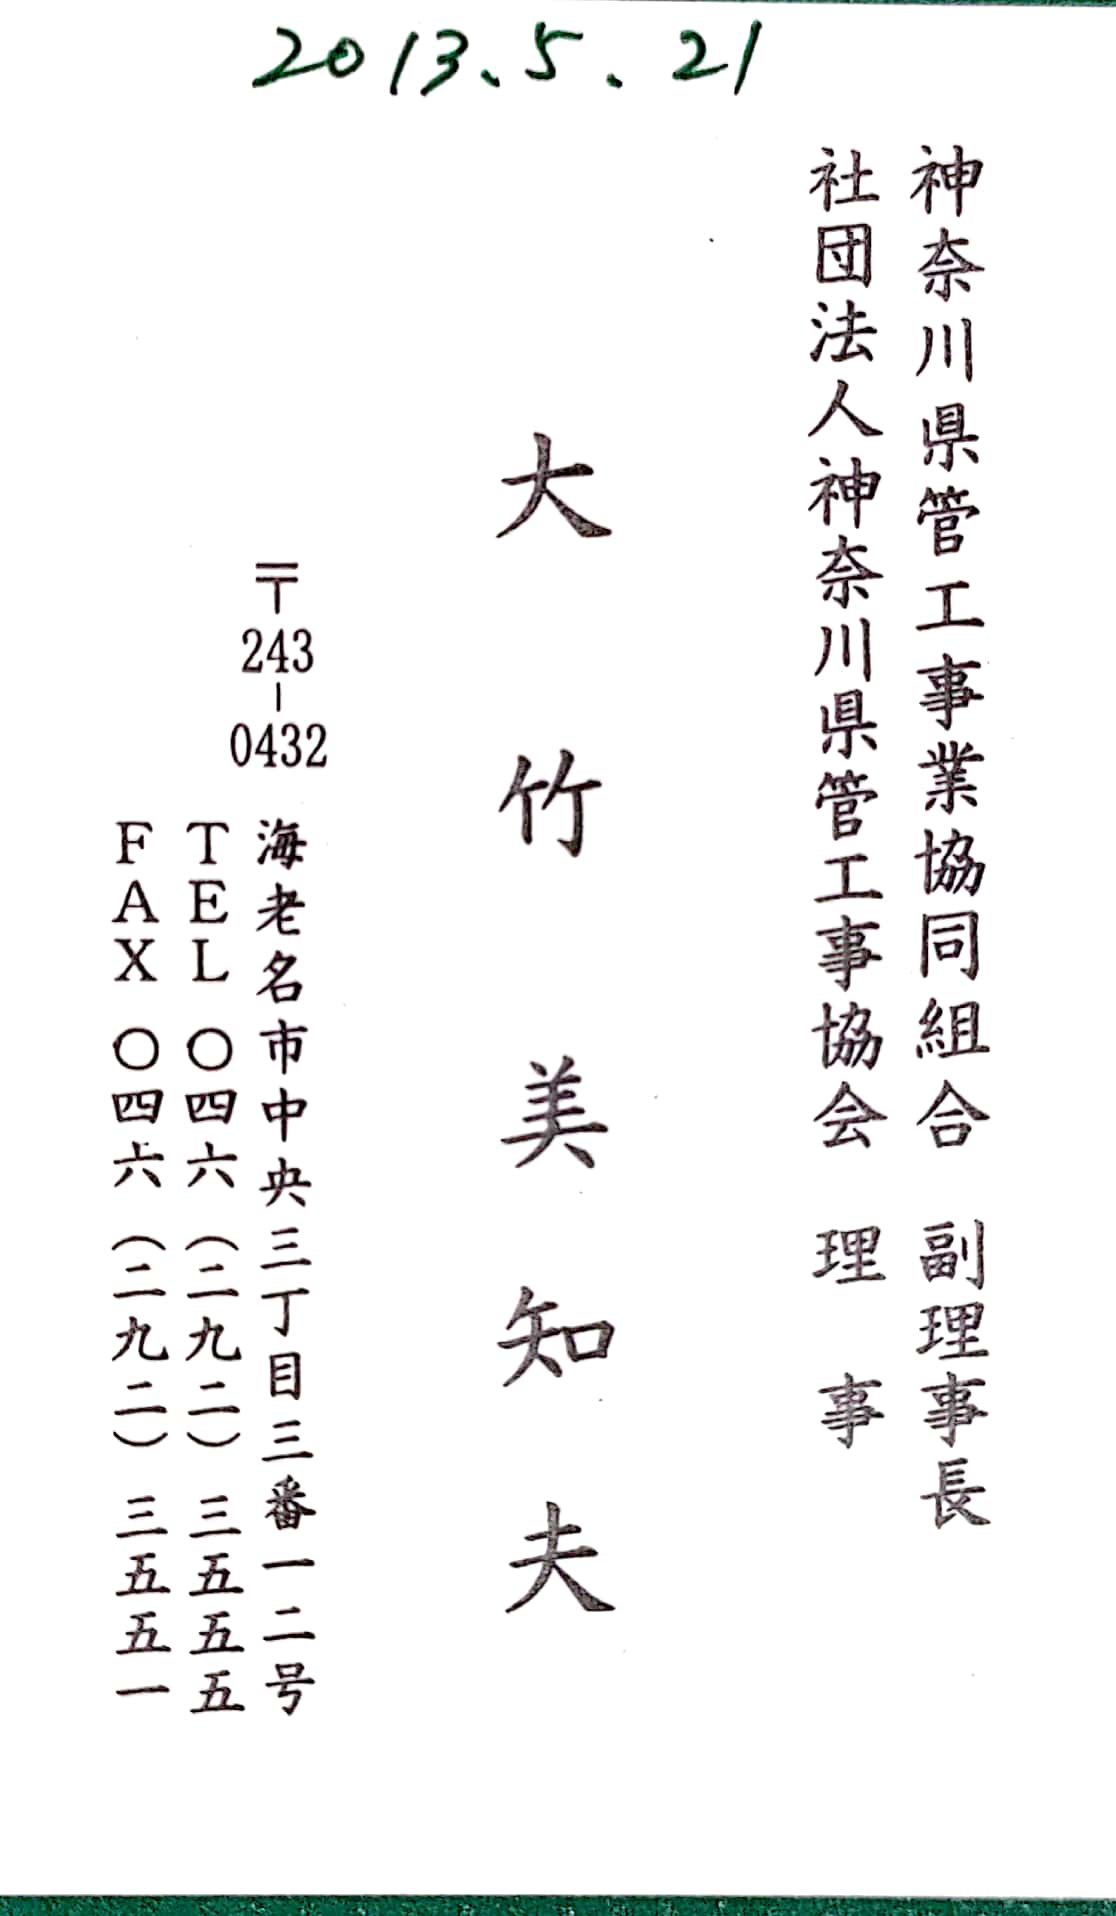 2013.5.21
神奈川県管工事業協同組合 副理事長
社団法人神奈川県管工事協会 理事
大竹美知夫
〒243-0432 海老名市中央三丁目三番一二号
TEL 〇四六(二九二)三五五五
FAX 〇四六(二九二)三五五一